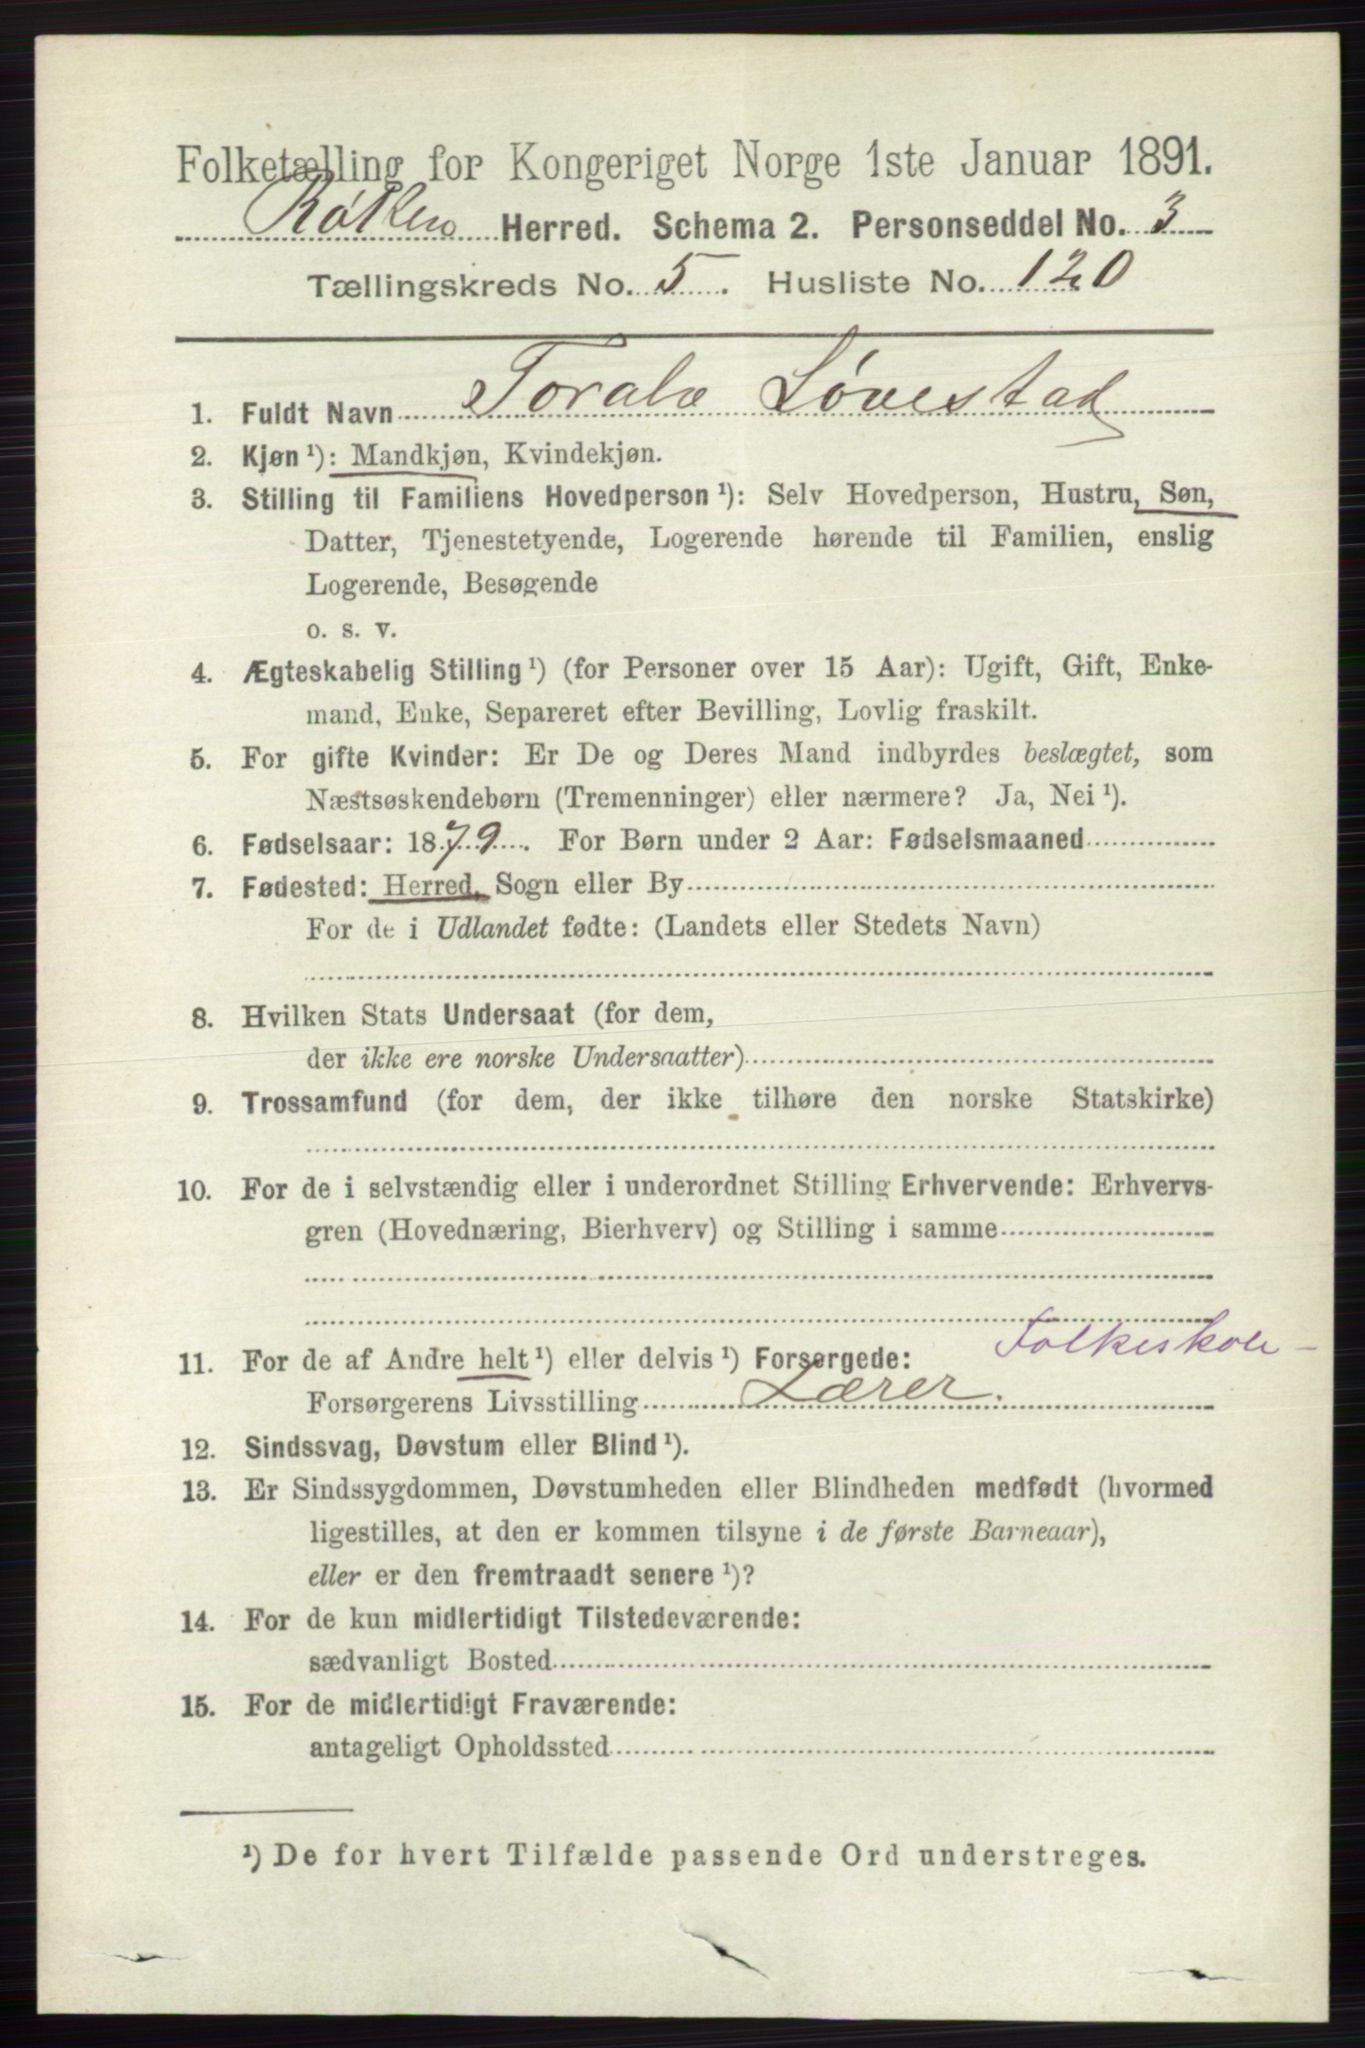 Folketælling for Kongeriget Norge 1ste Januar 1891.
Røken Herred. Schema 2. Personseddel No. 3
Tællingskreds No. 5. Husliste No. 120
1. Fuldt Navn Toralv Løvestad
2. Kjøn ¹): Mandkjøn, Kvindekjøn.
3. Stilling til Familiens Hovedperson ¹): Selv Hovedperson, Hustru, Søn,
Datter, Tjenestetyende, Logerende hørende til Familien, enslig
Logerende, Besøgende
o. s. v.
4. Ægteskabelig Stilling ¹) (for Personer over 15 Aar): Ugift, Gift, Enke-
mand, Enke, Separeret efter Bevilling, Lovlig fraskilt.
5. For gifte Kvinder: Er De og Deres Mand indbyrdes beslægtet, som
Næstsøskendebørn (Tremenninger) eller nærmere? Ja, Nei ¹).
6. Fødselsaar: 1879. For Børn under 2 Aar: Fødselsmaaned
7. Fødested: Herred, Sogn eller By
For de i Udlandet fødte: (Landets eller Stedets Navn)
8. Hvilken Stats Undersaat (for dem,
der ikke ere norske Undersaatter)
9. Trossamfund (for dem, der ikke tilhøre den norske Statskirke)
10. For de i selvstændig eller i underordnet Stilling Erhvervende: Erhvervs-
gren (Hovednæring, Bierhverv) og Stilling i samme
11. For de af Andre helt ¹) eller delvis ¹) Forsørgede: Folkeskole-
Forsørgerens Livsstilling Lærer.
12. Sindssvag, Døvstum eller Blind ¹).
13. Er Sindssygdommen, Døvstumheden eller Blindheden medfødt (hvormed
ligestilles, at den er kommen tilsyne i de første Barneaar),
eller er den fremtraadt senere ¹)?
14. For de kun midlertidigt Tilstedeværende:
sædvanligt Bosted
15. For de midlertidigt Fraværende:
antageligt Opholdssted
¹) De for hvert Tilfælde passende Ord understreges.